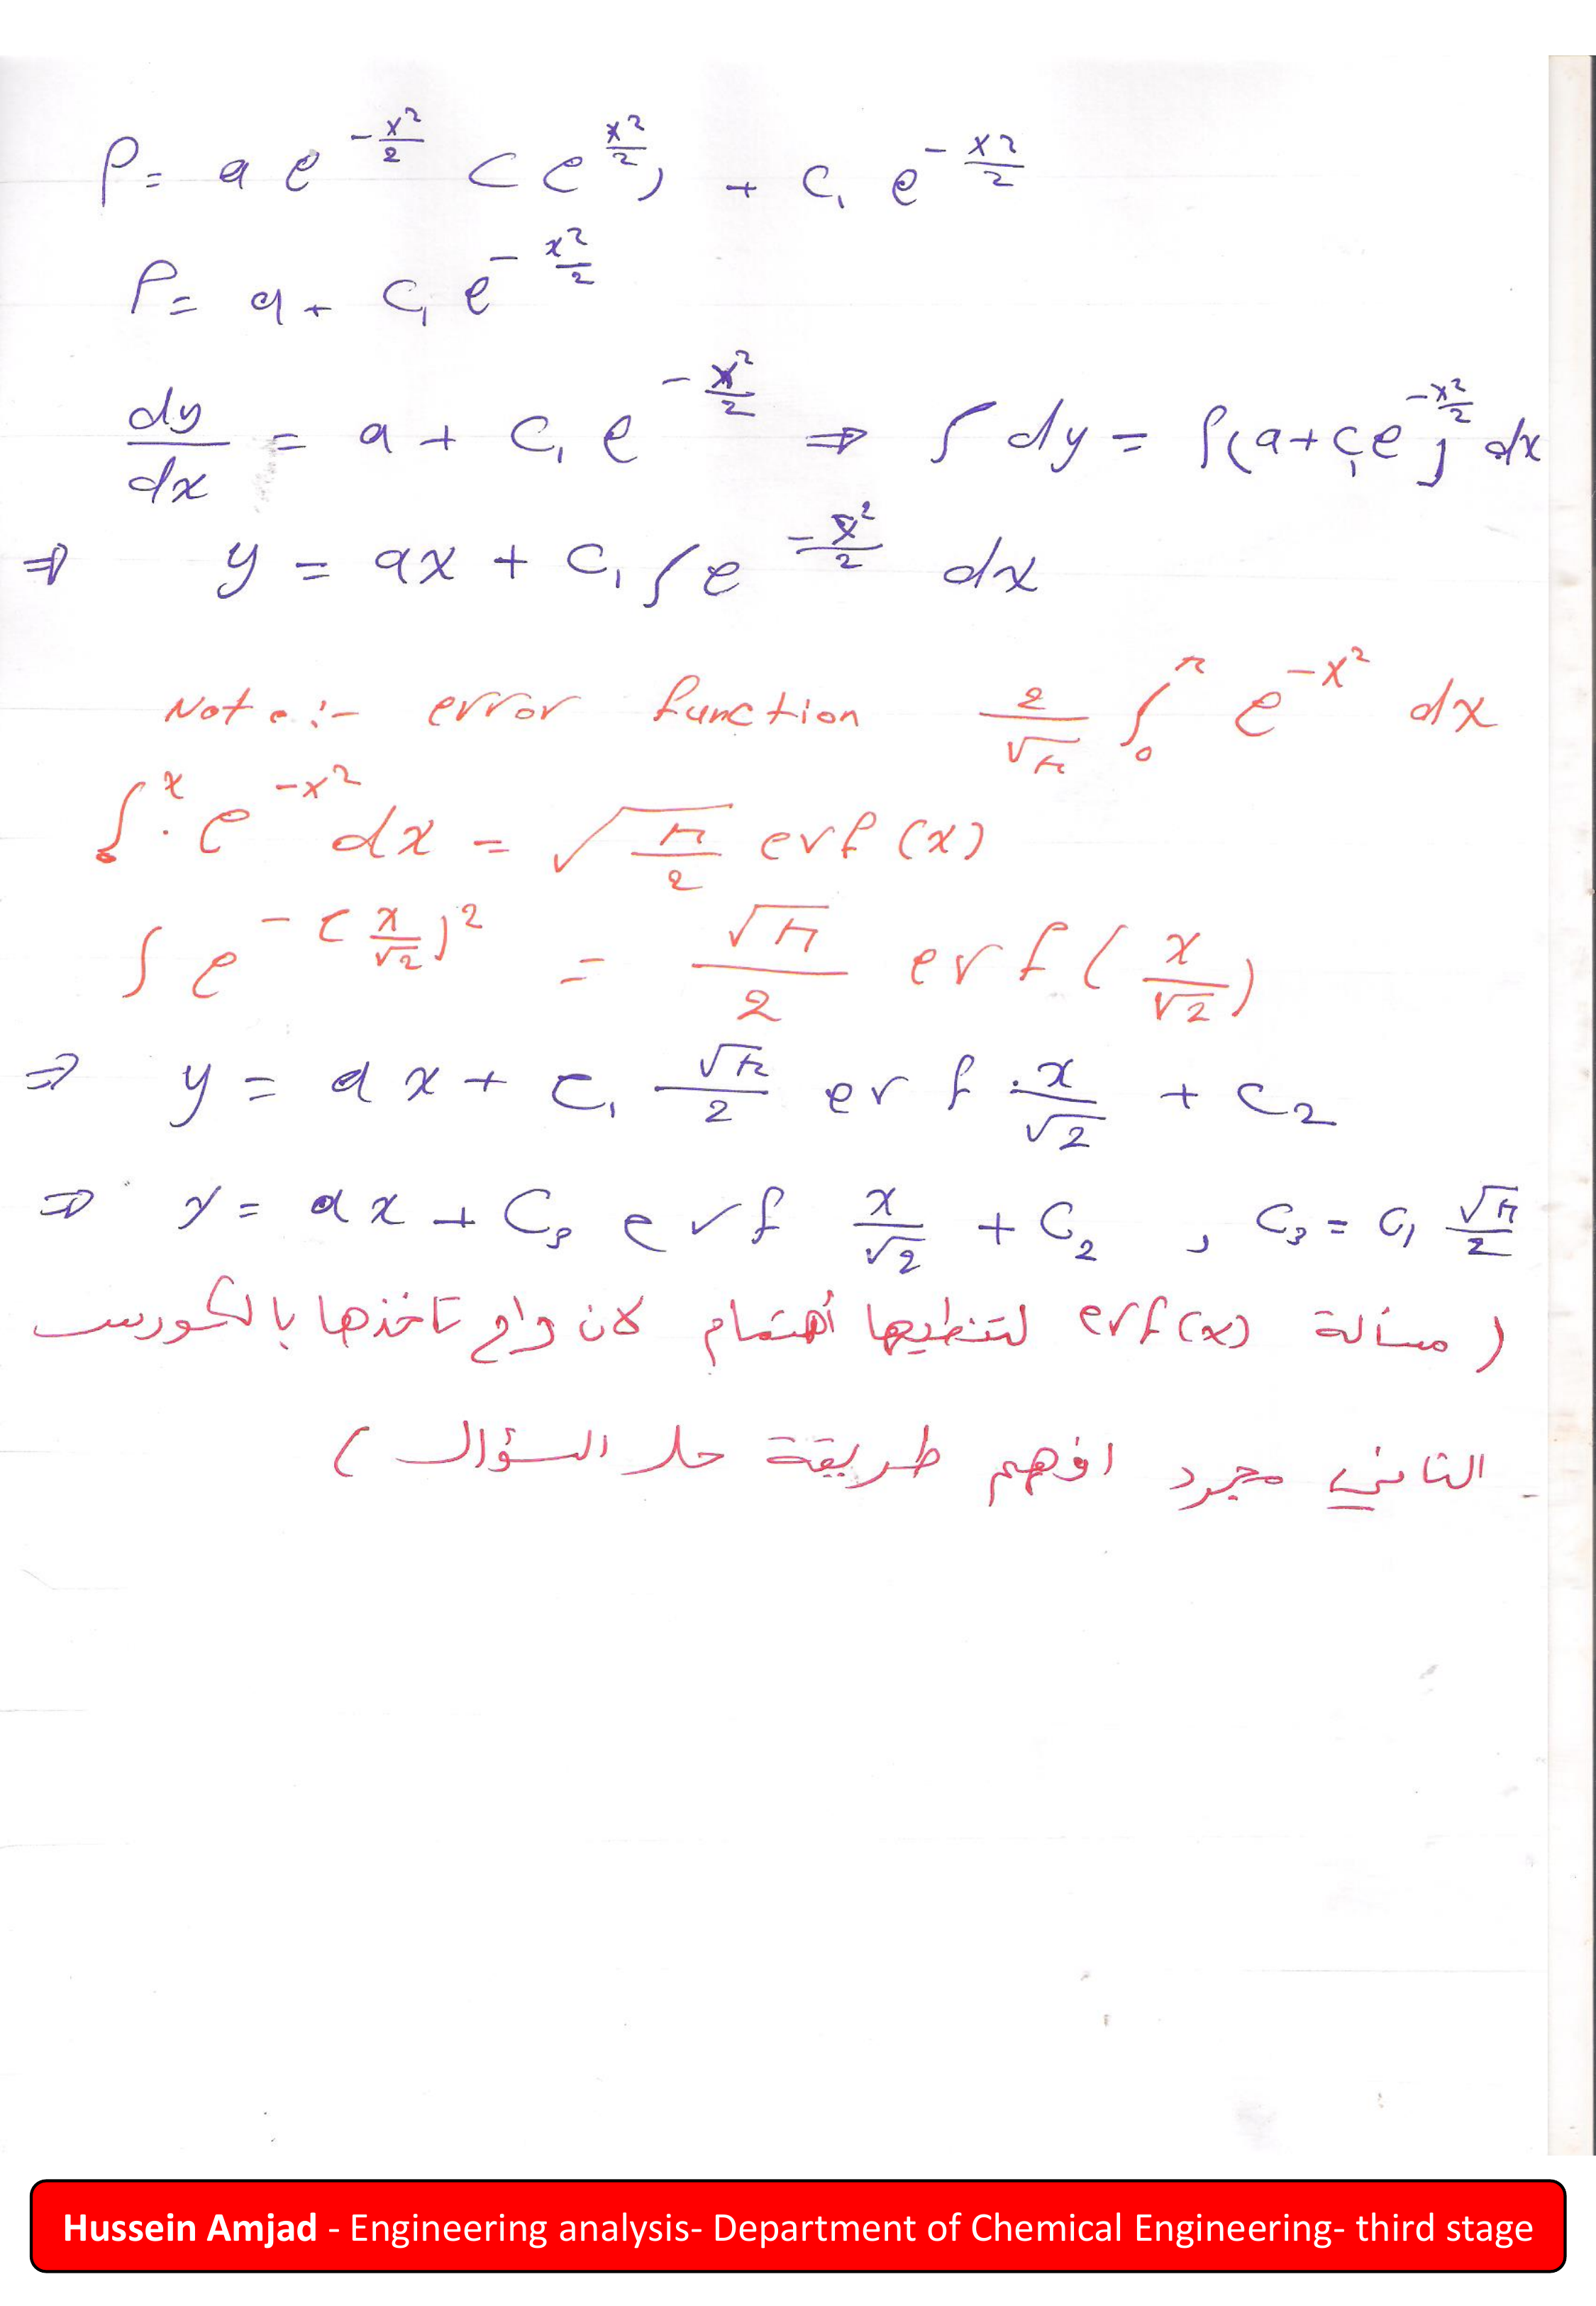 P = a e^{-x²/2} (e^{x²/2}) + c₁ e^{-x²/2}
P = a + c₁ e^{-x²/2}
dy/dx = a + c₁ e^{-x²/2} ⇒ ∫ dy = ∫(a + c₁e^{-x²/2}) dx
⇒ y = ax + c₁ ∫ e^{-x²/2} dx
Note :- error function 2/√π ∫₀^π e^{-x²} dx
∫₀^x e^{-x²} dx = √(π/2) erf (x)
∫ e^{-(x/√2)²} = √π/2 erf (x/√2)
⇒ y = ax + c₁ √π/2 erf x/√2 + c₂
⇒ y = ax + C₃ erf x/√2 + C₂ , C₃ = C₁ √π/2
( مسألة erf(x) لتنطيها أهتمام لان راح تاخذها بالكورس
الثاني مجرد افهم طريقة حل السؤال )
Hussein Amjad - Engineering analysis- Department of Chemical Engineering- third stage